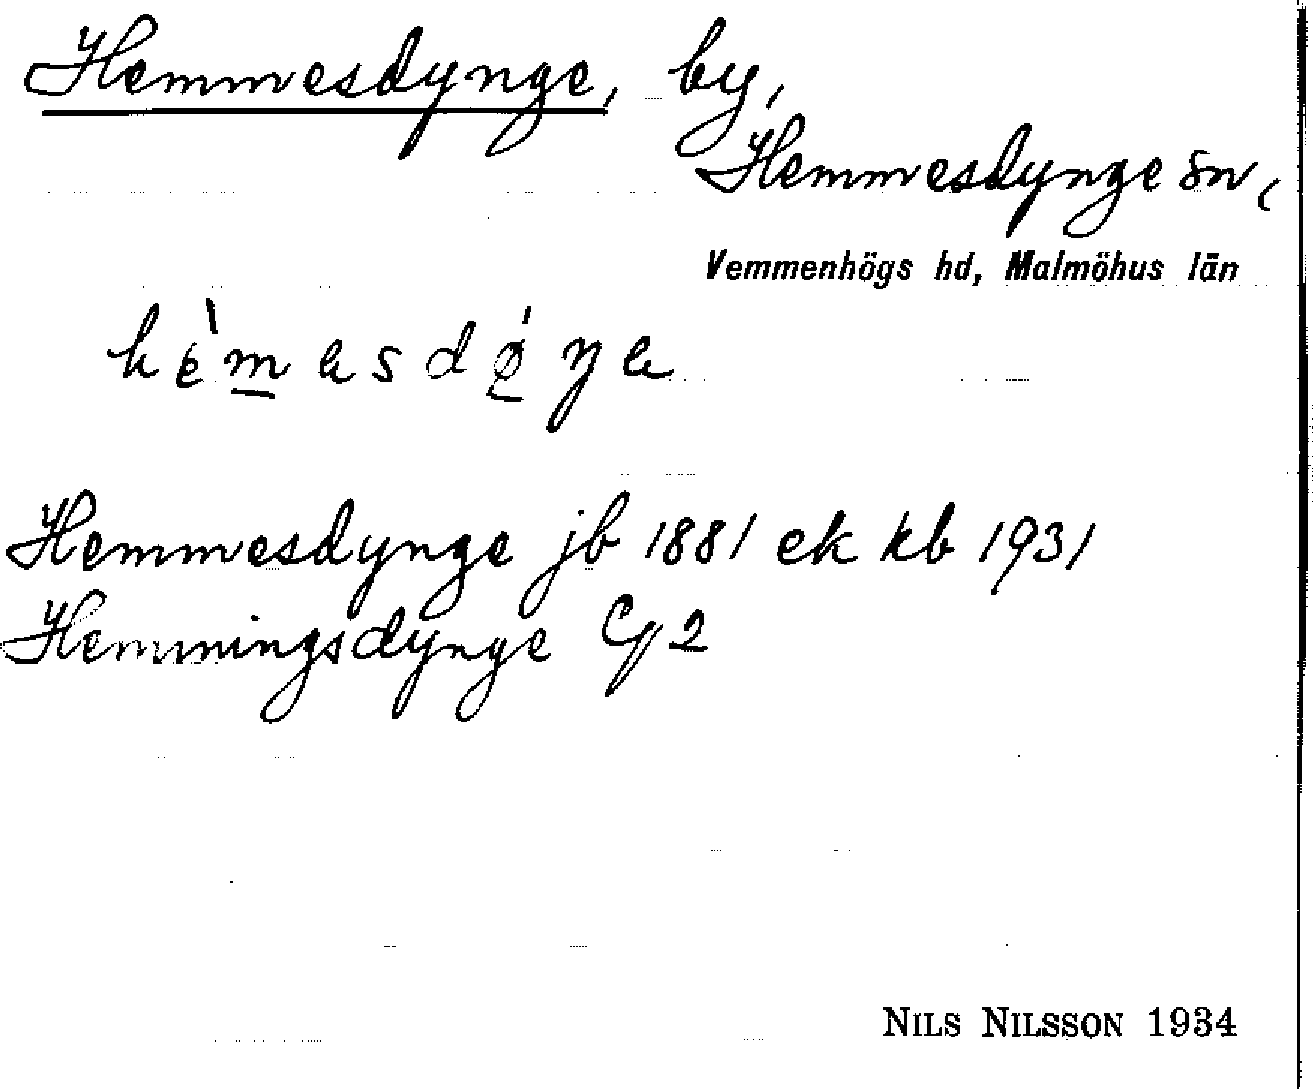 Hemmesdynge, by,
Hemmesdynge sn,
Vemmenhögs hd, Malmöhus län
Hemmesdynge jb 1881 ek kb 1931
Hemmingsdynge G2
NILS NILSSON 1934